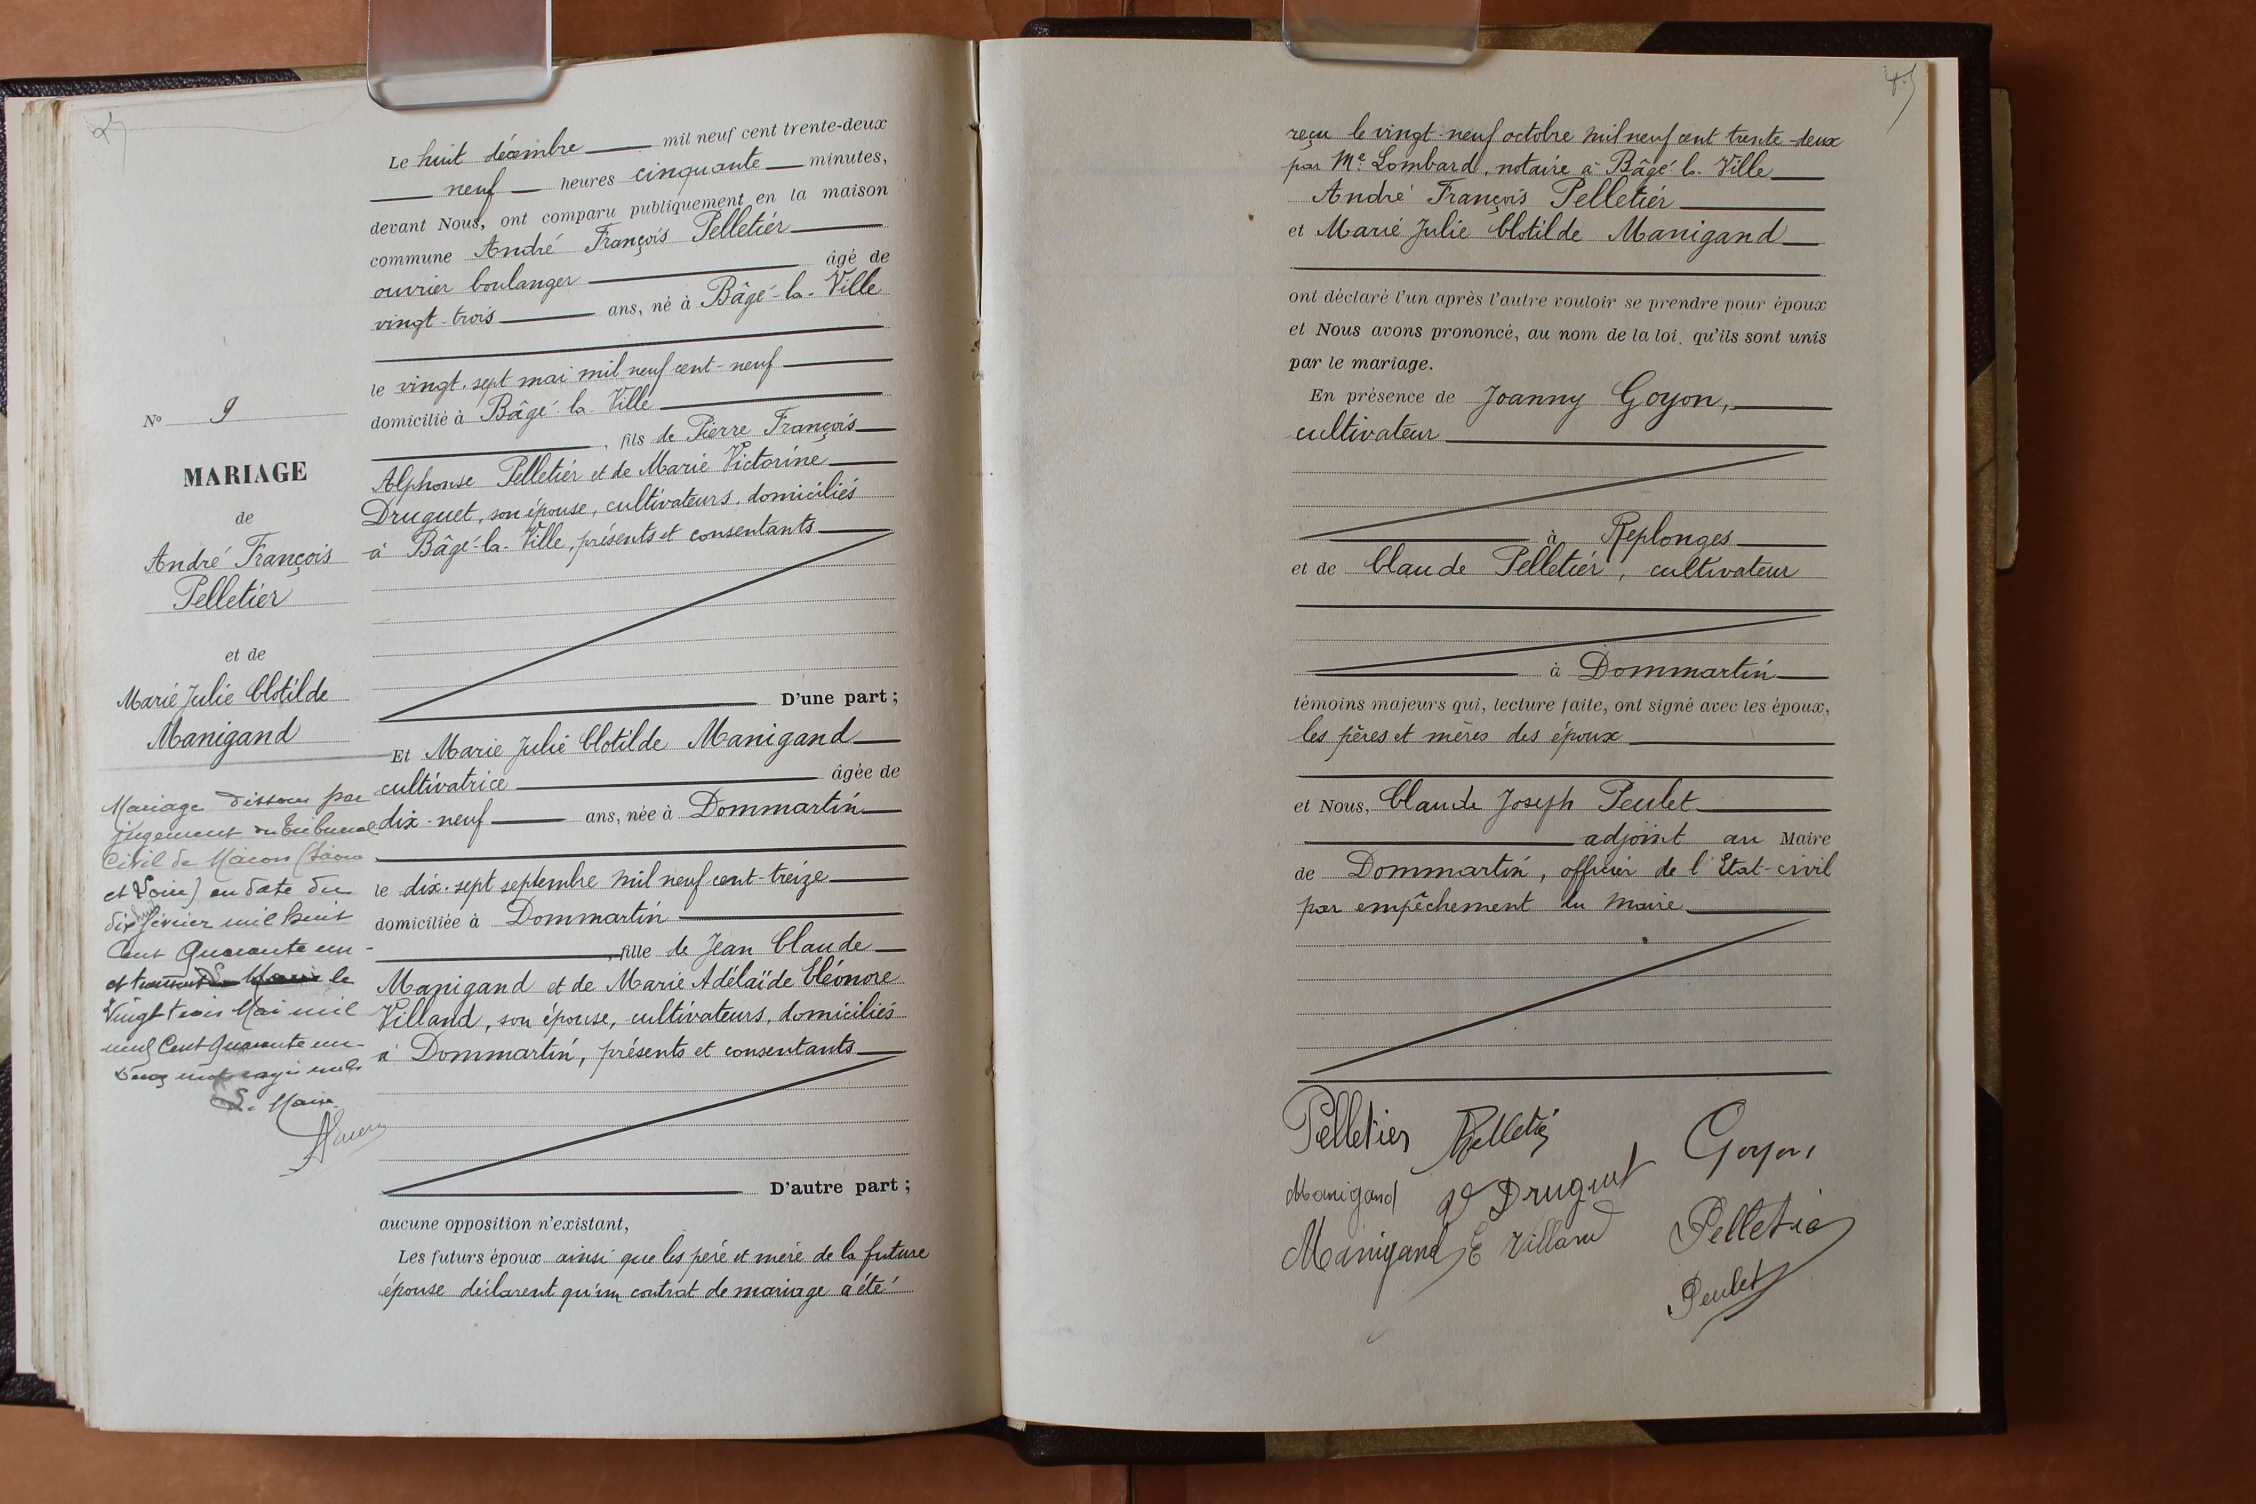 Le huit décembre mil neuf cent trente-deux
neuf heures cinquante minutes,
devant Nous, ont comparu publiquement en la maison
commune André François Pelletier
ouvrier boulanger âgé de
vingt-trois ans, né à Bâgé-la-Ville
le vingt-sept mai mil neuf cent-neuf
domicilié à Bâgé-la-Ville
, fils de Pierre François
Alphonse Pelletier et de Marie Victorine
Druguet, son épouse, cultivateurs, domiciliés
à Bâgé-la-Ville, présents et consentants
D'une part ;
Et Marie Julie Clotilde Manigand
cultivatrice âgée de
dix-neuf ans, née à Dommartin
le dix-sept septembre mil neuf cent-treize
domiciliée à Dommartin
, fille de Jean Claude
Manigand et de Marie Adélaïde Cléonore
Villand, son épouse, cultivateurs, domiciliés
à Dommartin, présents et consentants
D'autre part ;
aucune opposition n'existant,
Les futurs époux ainsi que les père et mère de la future
épouse déclarent qu'un contrat de mariage a été
No 9
MARIAGE
de
André François
Pelletier
et de
Marie Julie Clotilde
Manigand
Mariage dissous par
jugement du tribunal
Civil de Mâcon (Saône
et Loire) en date du
dix février mil huit
Cent Quarante un
et le
Vingt trois Mai mil
neuf Cent Quarante un
Deux mots rayés nuls
Le Maire
reçu le vingt-neuf octobre mil neuf cent trente-deux
par Me Lombard, notaire à Bâgé-la-Ville
André François Pelletier
et Marie Julie Clotilde Manigand
ont déclaré l'un après l'autre vouloir se prendre pour époux
et Nous avons prononcé, au nom de la loi, qu'ils sont unis
par le mariage.
En présence de Joanny Goyon,
cultivateur
à Replonges
et de Claude Pelletier, cultivateur
à Dommartin
témoins majeurs qui, lecture faite, ont signé avec les époux,
les pères et mères des époux
et Nous, Claude Joseph Peulet
adjoint au Maire
de Dommartin, officier de l'Etat-civil
par empêchement du Maire
Pelletier Pelletier Goyon
Manigand V Druguet
Manigand E Villand Pelletier
Peulet